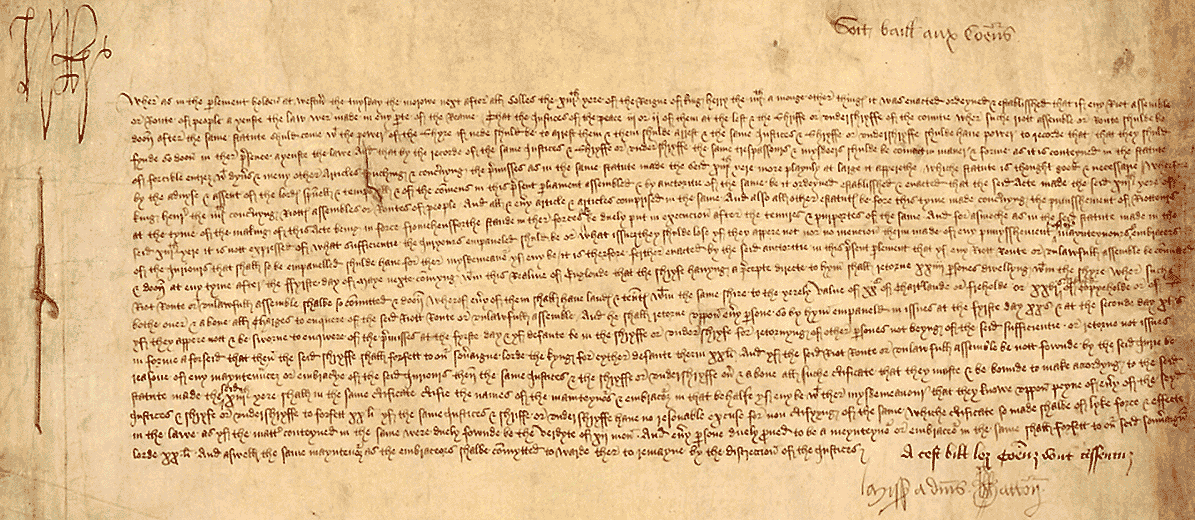 Soit baill aux Coẽns
Wher as in the plement holden at Westm̃ the tuysday the morowe next after all Solles the xiijth yere of the Reigne of kyng henry the iiijth amonge other thinges it was enacted ordeyned & establisshed that if eny Riot assemble
or Route of people ayenst the law wer made in eny pte of the Reame That the Justices of the peace iij or ij of them at the lest & the Shriffe or undershriffe of the countie wher suche riott assemble or Route shulde be
doon after the same statute shuld come wt the power of the Shyre if nede shuld be to arest them & them shulde arrest & the same Justices & Shriffe or undershriffe shulde have power to recorde that that they shuld
fynde so doon in ther psence ayenst the lawe And that by the recorde of the same Justices & Shriffe or undershriffe the same trespassours & mysdoers shulde be convict in maner & forme as it is conteyned in the statute
of forcible entrez wt dyvs & meny other Articles touching & concnyng the pmisses as in the same statute made the seid xiijth yere more playnly at large it apperithe whiche statute is thought good & necessarie Wherfore
by the advyse & assent of the lordes spuell & tempall & of the comens in this psent pliament assembled & by auctorite of the same be it ordeyned establisshed & enacted that the seid Acte made the seid xiijth yere of
kyng henry the iiijth concnyng Riottes assembles or Routes of people And all & evy article & articles comprised in the same And also all other estatutes be fore this tyme made concnyng the punisshement of Riotteurs
at the tyme of the making of this Acte being in force fromehensforthe stande in ther forces & be duely put in execucion after the tenures & purportes of the same And for asmoche as in the seid statute made in the
seid xiijth yere it is not expressed of what sufficientie the Jurours empaneled shuld be or what issues they shulde lose yf they appere not nor no mencion therin made of eny punysshement mayntenours & embracers
of the Jurours that shall so be empanelled shulde have for ther mysdemeane yf eny be it is therfore ferther enacted by the seid auctorite in this psent plement that yf eny Riot Rout or unlawfull assemble be comitted
& doon at eny tyme after the ffyrste day of Maye next comyng wtin this Realme of Englonde that the shriffe havyng a pcepte directe to hym shall retorne xxiiij psones dwellyng wtin the shyre wher suche
Riot Route or unlawfull assemble shalbe so comitted & doon wherof evy of them shall have landes & tentes wtin the same shire to the yerely value of xxs of Chartlande or freholde or xxvjs viijd of copyeholde or of
bothe over & above all charges to enquere of the seid Riott Route or unlawfull assemble And he shall retorne uppon evy psone so by hym empaneled in issues at the fyrste day xxs & at the seconde day xls
yf they appere not & be sworne to enquere of the pmisses at the fyrste day & yf defaute be in the shryffe or under shryfe for retornyng of other psones not beyng of the seid sufficientie or retorne not issues
in forme aforseid that then the seid shryffe shall forfett to our sovaigne lorde the kyng for eyther defaute therin xx li And yf the seid Riot Route or unlawfull assemble be nott fownde by the seid Jurie be
reasone of eny mayntennce or embracye of the seid Jurours then the same Justices & the shriffe or undershriffe over & above all suche certificate that they moste & be bounde to make acordyng to the seid
statute made the seid xiijth yere shall in the same certificate certifie the names of the mayntenours & embracers in that behalfe yf eny be wt ther mysdemeanours that they knowe uppon peyne of evy of the seyd
Justices & shryfe or undershriffe to forfett xx li yf the same Justices & shriffe or undershriffe have no resonable excuse for non certifyeng of the same Whiche certificate so made shalbe of lyke force & effecte
in the lawe as yf the matter conteyned in the same were duely fownde be the verdyte of xij men And evy psone duely pved to be a meyntenor or embracer in the same shall forfett to our seid sovaign
lorde xx li And aswell the same mayntenors as the embraceors shalbe comytted to warde ther to remayne by the discrecion of the Justices
A cest bill lez Coẽnz sont assentuz